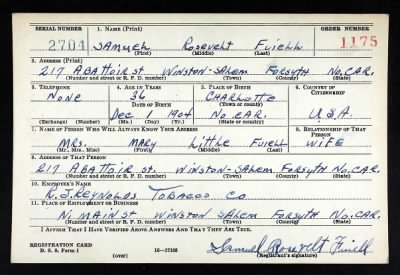 SERIAL NUMBER 1. NAME (Print) ORDER NUMBER
2704 SAMUEL ROSEVELT FUIELL 1175
(First) (Middle) (Last)
2. ADDRESS (Print)
217 ABATTOIR ST. WINSTON-SALEM FORSYTH NO. CAR.
(Number and street or R. F. D. number) (Town) (County) (State)
3. TELEPHONE 4. AGE IN YEARS 5. PLACE OF BIRTH 6. COUNTRY OF CITIZENSHIP
NONE 36 CHARLOTTE
DATE OF BIRTH (Town or county)
DEC 1 1904 NO. CAR. U.S.A
(Exchange) (Number) (Mo.) (Day) (Yr.) (State or country)
7. NAME OF PERSON WHO WILL ALWAYS KNOW YOUR ADDRESS 8. RELATIONSHIP OF THAT PERSON
MRS. MARY LITTLE FUIELL WIFE
(Mr., Mrs., Miss) (First) (Middle) (Last)
9. ADDRESS OF THAT PERSON
217 ABATTOIR ST. WINSTON-SALEM FORSYTH NO. CAR.
(Number and street or R. F. D. number) (Town) (County) (State)
10. EMPLOYER'S NAME
R.J. REYNOLDS TOBACCO CO
11. PLACE OF EMPLOYMENT OR BUSINESS
N. MAIN ST WINSTON SALEM FORSYTH NO. CAR.
(Number and street or R. F. D. number) (Town) (County) (State)
I AFFIRM THAT I HAVE VERIFIED ABOVE ANSWERS AND THAT THEY ARE TRUE.
REGISTRATION CARD
D. S. S. Form 1 16—17105 Samuel Rosevelt Fuiell
(over) (Registrant's signature)